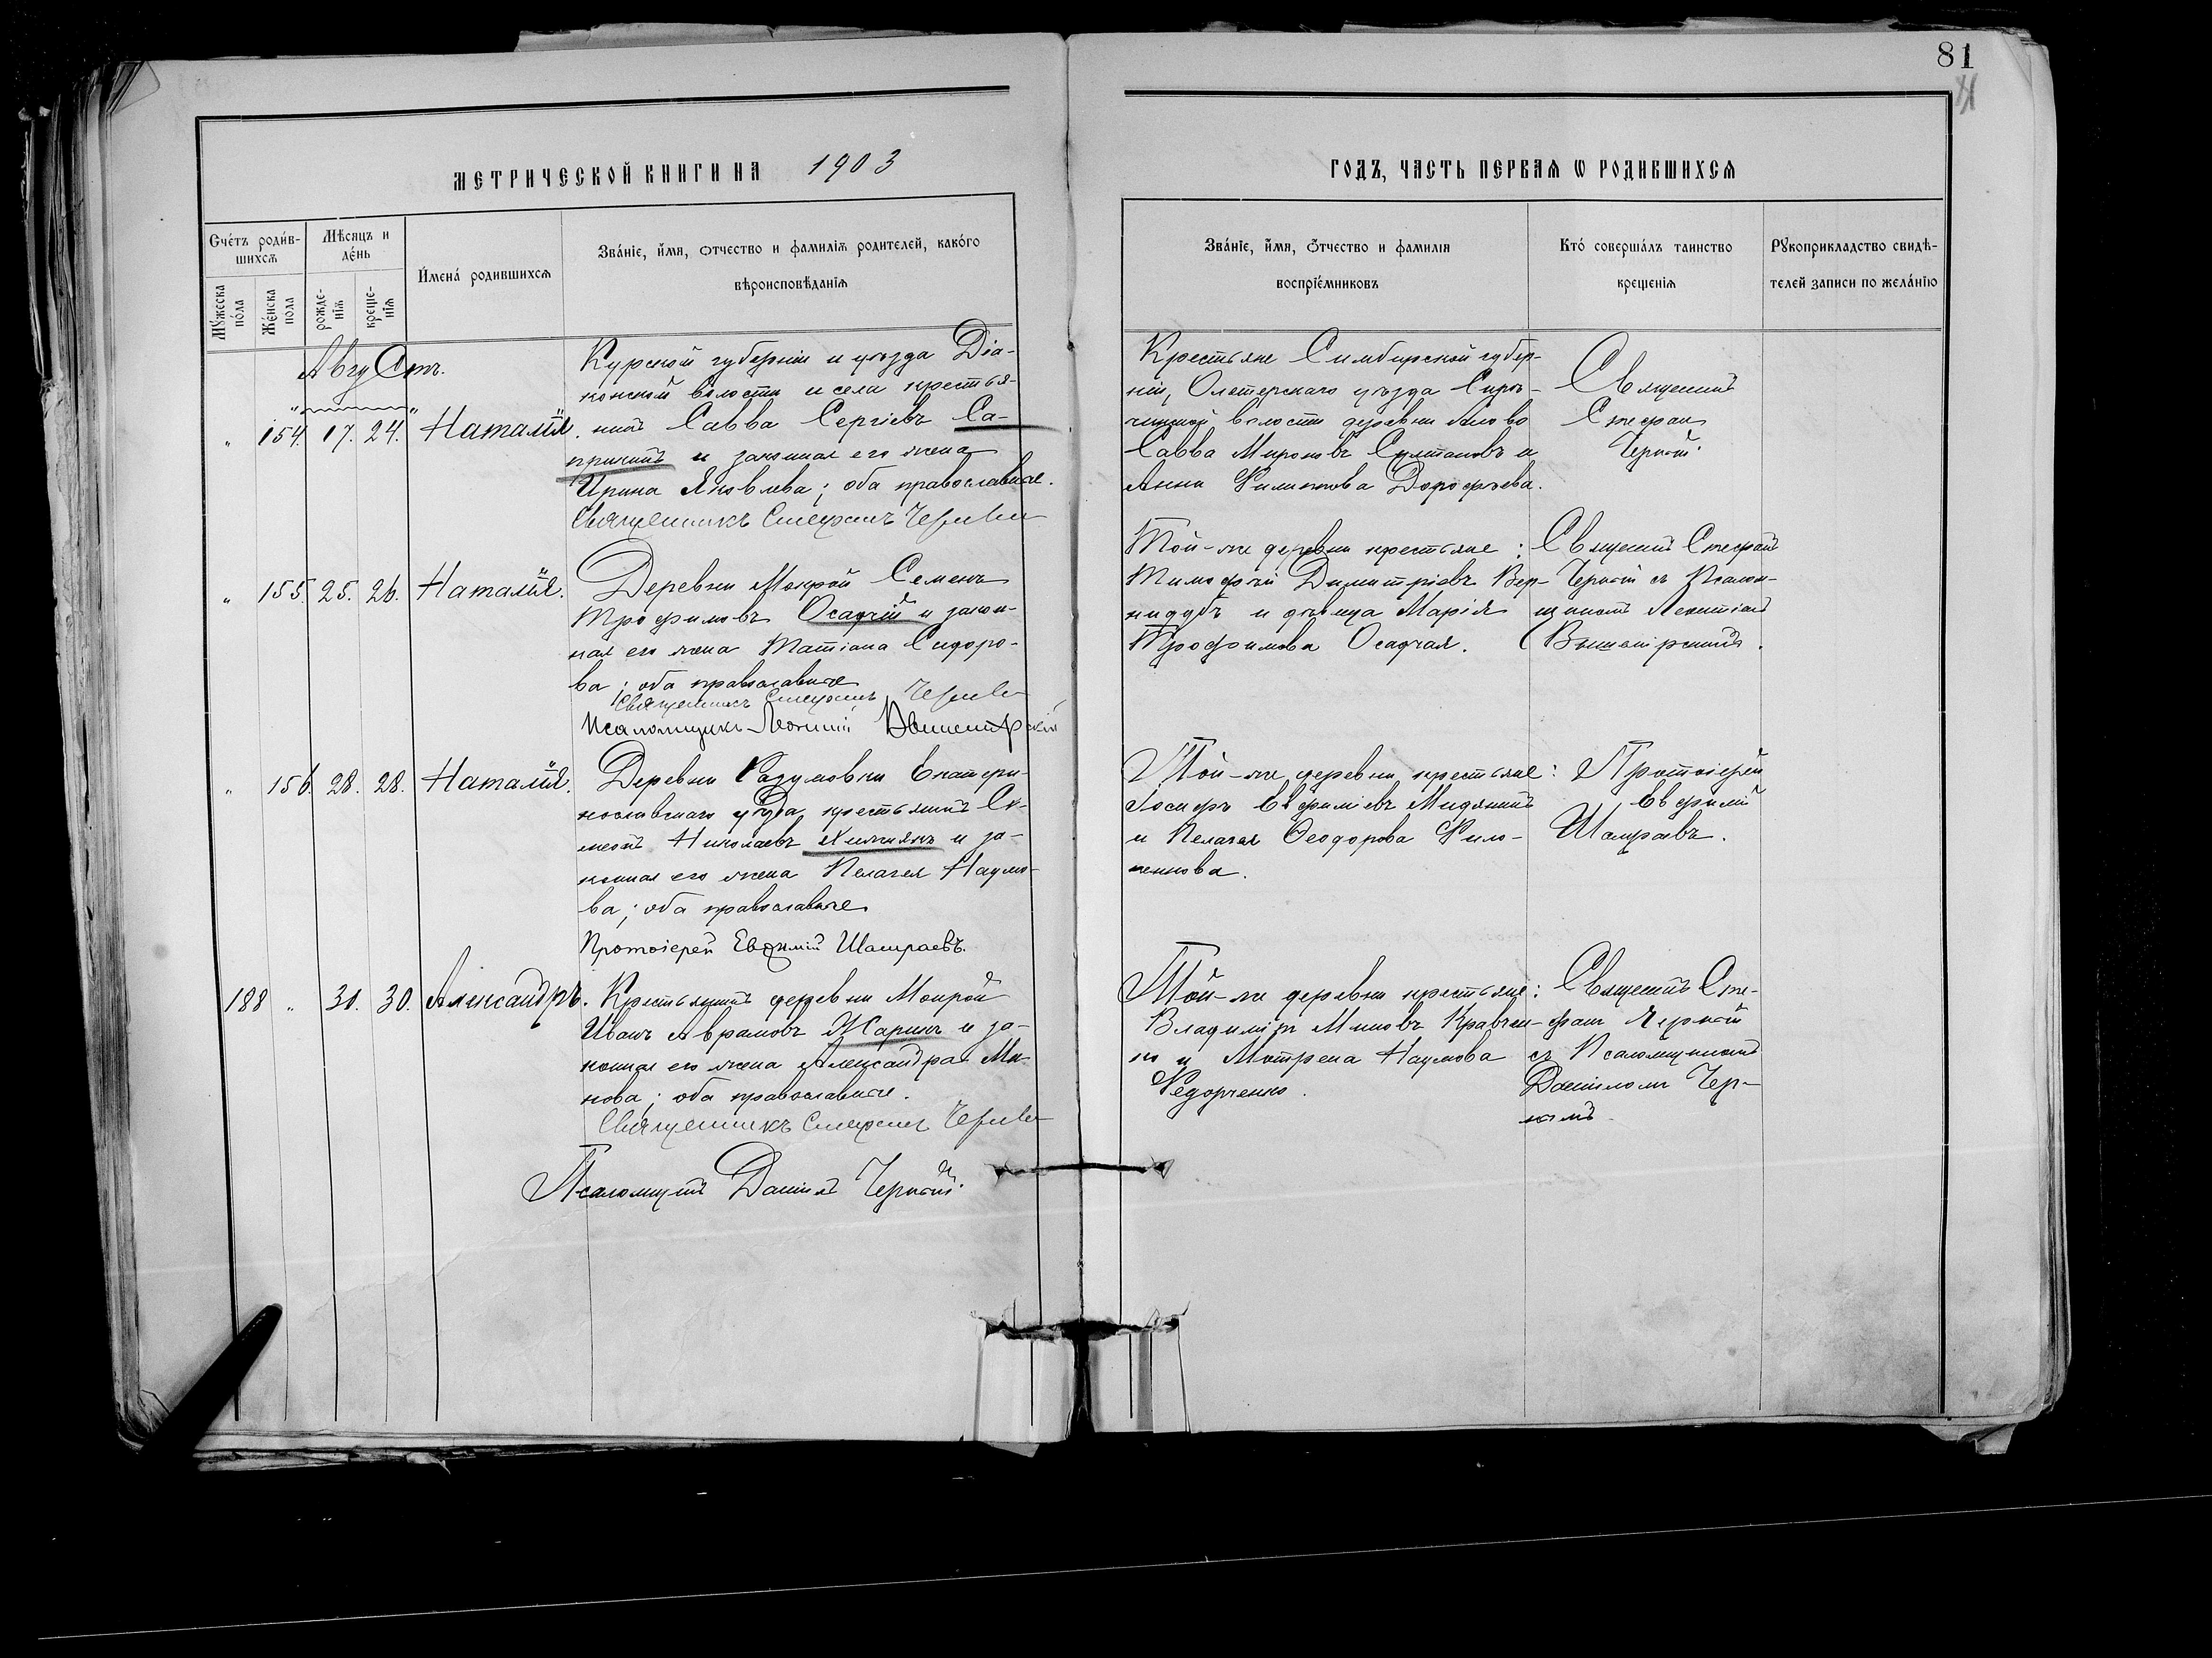 81
МЕТРИЧЕСКОЙ КНИГИ НА 1903
ГОДЪ, ЧАСТЬ ПЕРВАѦ Ѡ РОДИВШИХСѦ
Счétъ роди́в-
шихсѧ
Мѣсяцъ и
де́нь
И́мена́ родившихсѧ
Зва́нїе, и́мя, ѻтчество и фамилїѧ родителей, како́го
вѣроисповѣданїѧ
Мꙋ́жеска
по́ла
Же́нска
пола
рожде-
нїѧ
креще-
нїѧ
Зва́нїе, и́мя, ѻтчество и фамилїя
воспрїе́мниковъ
Кто́ совершáлъ таинство
крещенїѧ
Рꙋкоприкладство свидѣ-
телей записи по желáнїю
Августъ.
" 154. 17. 24. Наталія.
Курской губерніи и уѣзда Діа-
конской волости и села крестья-
нинъ Савва Сергіевъ Са-
прикинъ и законная его жена
Ирина Яковлева; оба православные.
Священникъ Стефанъ Черный
Крестьяне Симбирской губер-
ніи, Алатырскаго уѣзда
волости деревни Алово
Савва Мироновъ Султановъ и
Анна Филиппова Дорофѣева.
Священникъ
Стефан
Черный.
" 155. 25. 26. Наталія.
Деревни Мокрой Семенъ
Трофимовъ Осадчій и закон-
ная его жена Татіана Сидоро-
ва; оба православные
Священникъ Стефанъ Черный
Псаломщикъ Леонтій
Той-же деревни крестьяне:
Тимофей Димитріевъ Вер-
и дѣвица Марія
Трофимова Осадчая.
Священникъ Стефанъ
Черный съ Псалом-
щикомъ Леонтіемъ
" 156. 28. 28. Наталія.
Деревни Разумовки Екатери-
нославскаго уѣзда, крестьянинъ Си-
меонъ Николаевъ и за-
конная его жена Пелагея Наумо-
ва; оба православные
Протоіерей Евѳимій Шамраевъ.
Той-же деревни крестьяне:
Іосифъ Евфиміевъ
и Пелагея Ѳеодорова Фило-
ненкова.
Протоіерей
Евфимій
Шамраевъ.
188 " 30. 30. Александръ.
Крестьянинъ деревни Мокрой
Иванъ Аврамовъ Жаринъ и за-
конная его жена Александра Ми-
нова; оба православные.
Священникъ Стефанъ Черный
Псаломщикъ Даніилъ Черный.
Той-же деревни крестьяне:
Владиміръ Миновъ Кравчен-
ко и Мотрена Наумова
Федорченко.
Священникъ Сте-
фанъ Черный
съ Псаломщикомъ
Даніиломъ Чер-
нымъ.